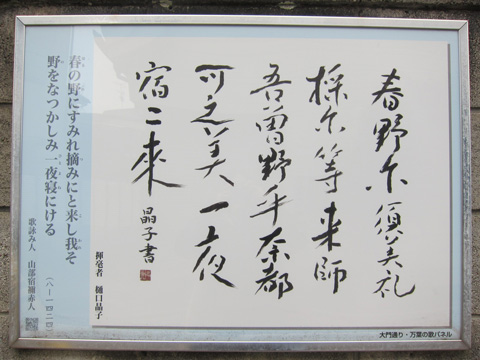 春野尓須美礼
採尓等来師
吾曽野乎奈都
可之美一夜
宿二來
晶子書
揮毫者 樋口晶子
春の野にすみれ摘みにと来し我そ
野をなつかしみ一夜寝にける
(八-一四二四)
歌詠み人 山部宿禰赤人
大門通り・万葉の歌パネル